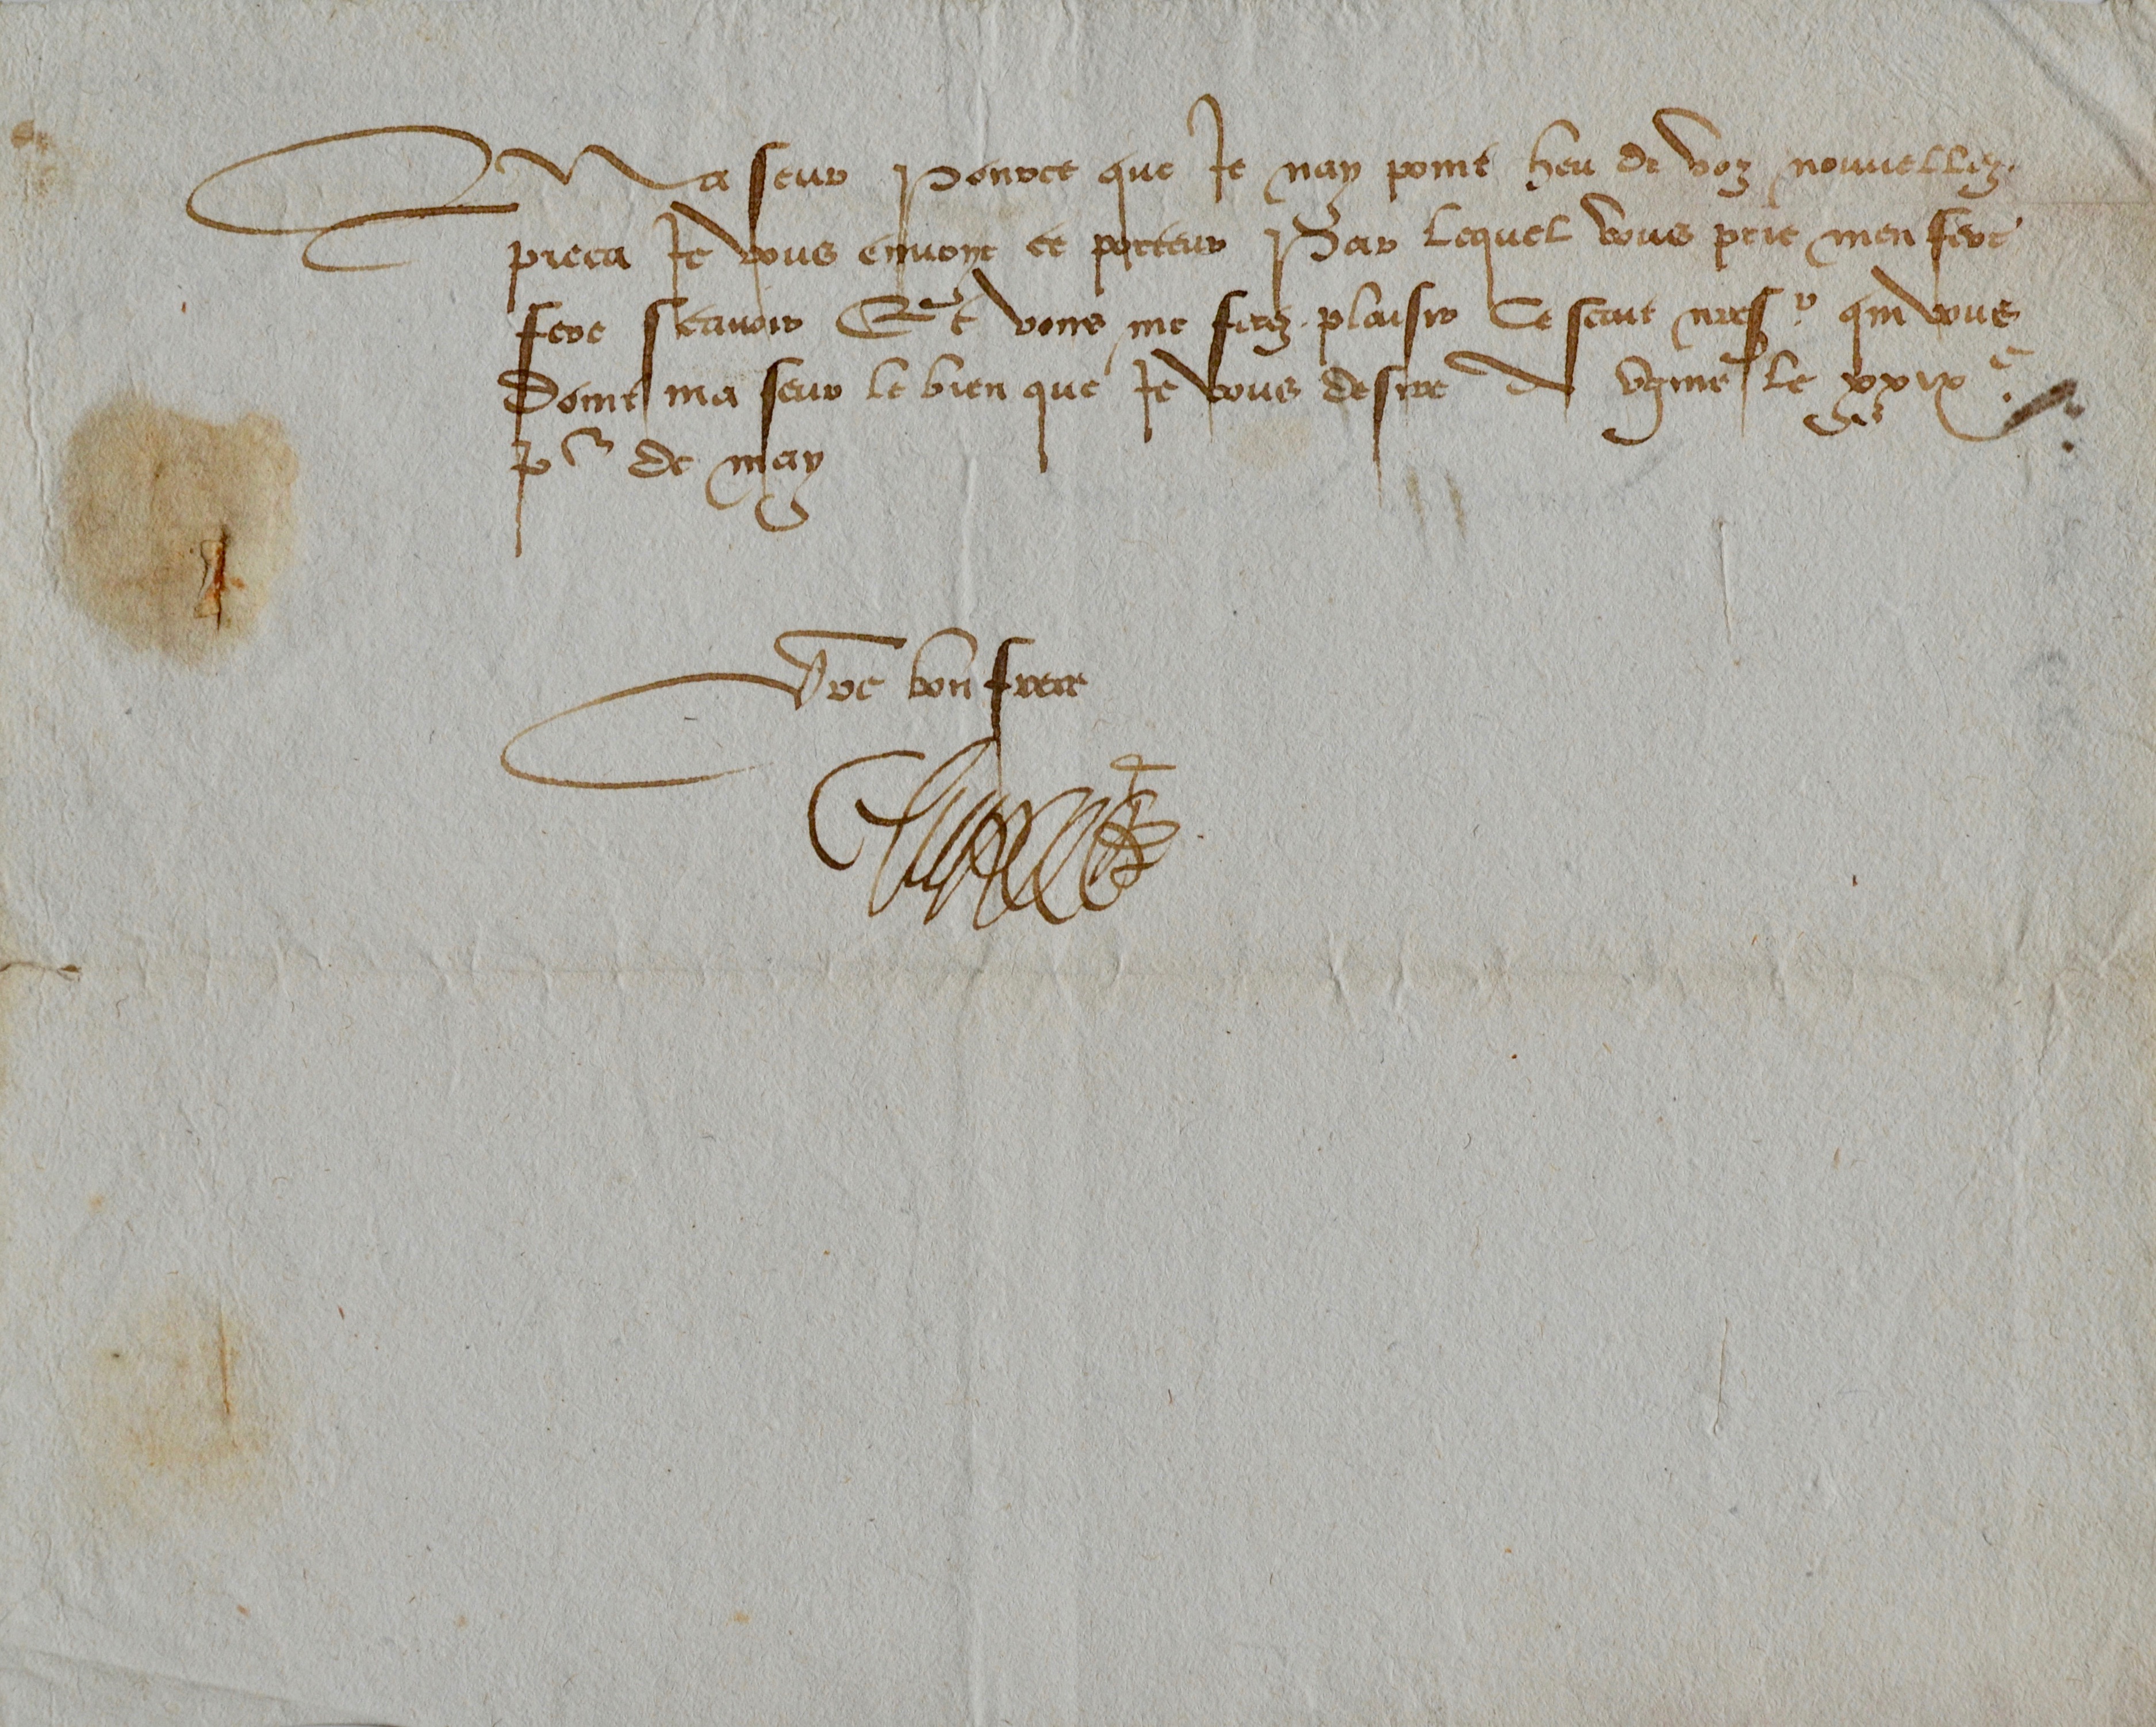 Ma seur Pource que Je nay point heu de voz nouvellez
pieca Je vous envoye ce porteur Par lequel vous prie men fere
fere scavoir Et vous me ferez plaisir Ce scait nres.r qui vous
doint ma seur le bien que Je vous desire le xxixe
jor de may
Vre bon frere